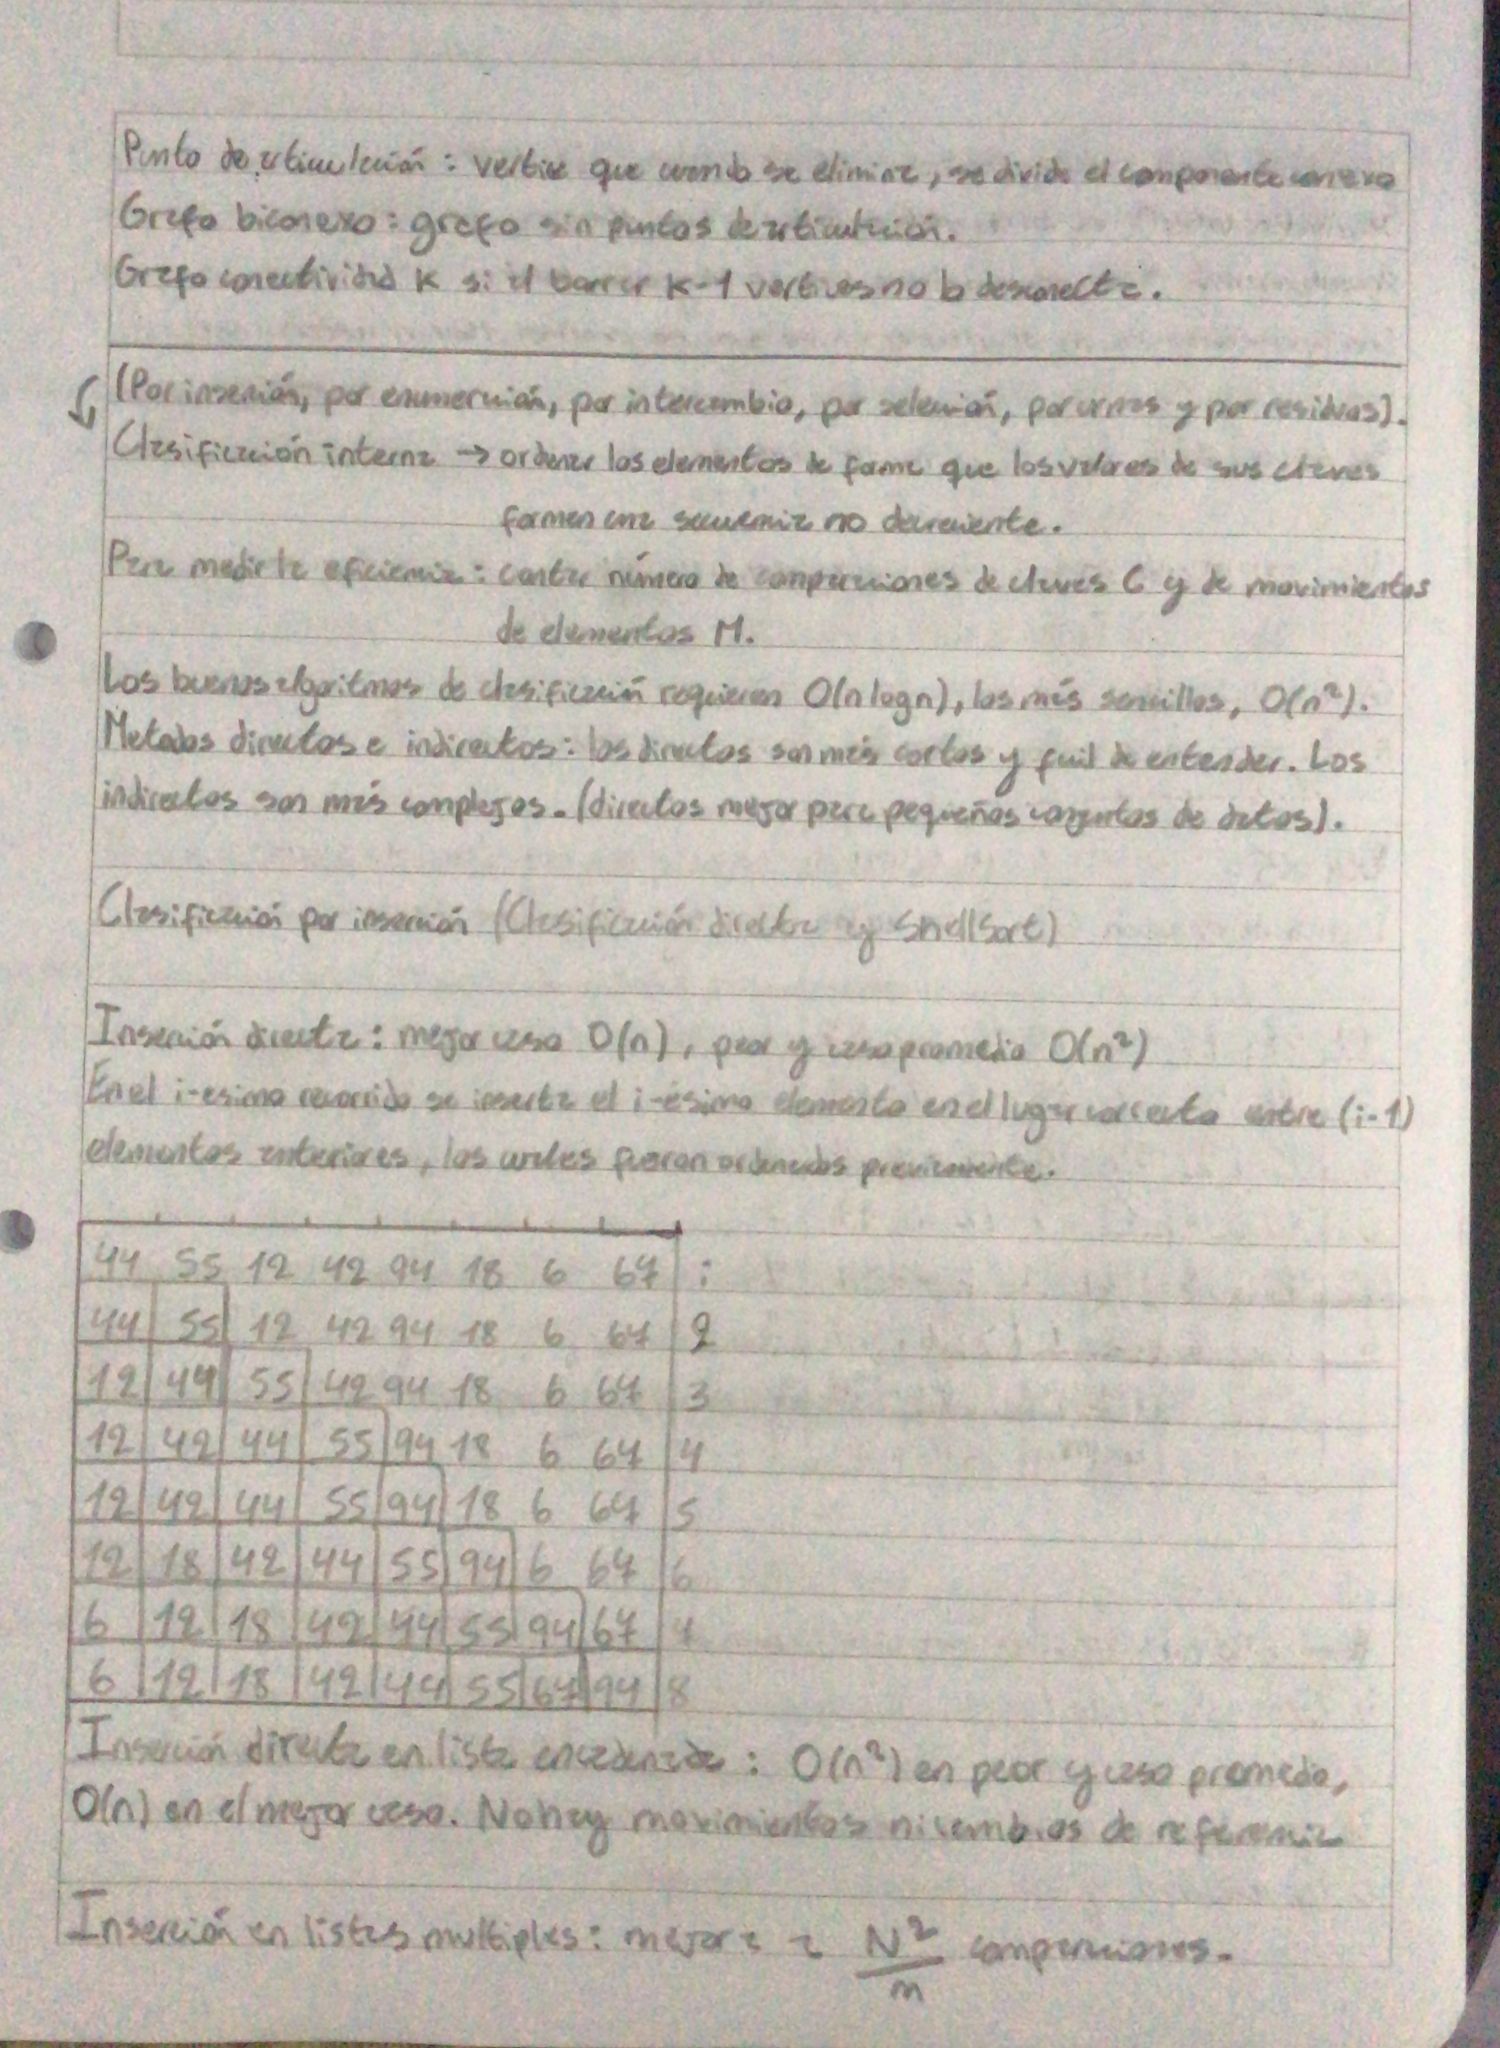 Punto de articulación: vertice que cuando se elimina, se divide el componente conexo
Grafo biconexo: grafo sin puntos de articulación.
Grafo conectividad K si el borrar K-1 vertices no lo desconecta.
(Por inserción, por enumeración, por intercambio, por selección, por urnas y por residuos).
Clasificación interna → ordenar los elementos de forma que los valores de sus claves
formen una secuencia no decreciente.
Para medir la eficiencia: contar número de comparaciones de claves C y de movimientos
de elementos M.
Los buenos algoritmos de clasificación requieren O(n logn), los más sencillos, O(n²).
Metodos directos e indirectos: los directos son más cortos y facil de entender. Los
indirectos son más complejos. (directos mejor para pequeños conjuntos de datos).
Clasificación por inserción (Clasificación directa y ShellSort)
Inserción directa: mejor caso O(n), peor y caso promedio O(n²)
En el i-esimo recorrido se inserta el i-ésimo elemento en el lugar correcto entre (i-1)
elementos anteriores, los cuales fueron ordenados previamente.
44 55 12 42 94 18 6 67 i
44 55 12 42 94 18 6 67 2
12 44 55 42 94 18 6 67 3
12 42 44 55 94 18 6 67 4
12 42 44 55 94 18 6 67 5
12 18 42 44 55 94 6 67 6
6 12 18 42 44 55 94 67 7
6 12 18 42 44 55 67 94 8
Inserción directa en lista encadenada: O(n²) en peor y caso promedio,
O(n) en el mejor caso. No hay movimientos ni cambios de referencia
Inserción en listas multiples: mejora a N²/m comparaciones.